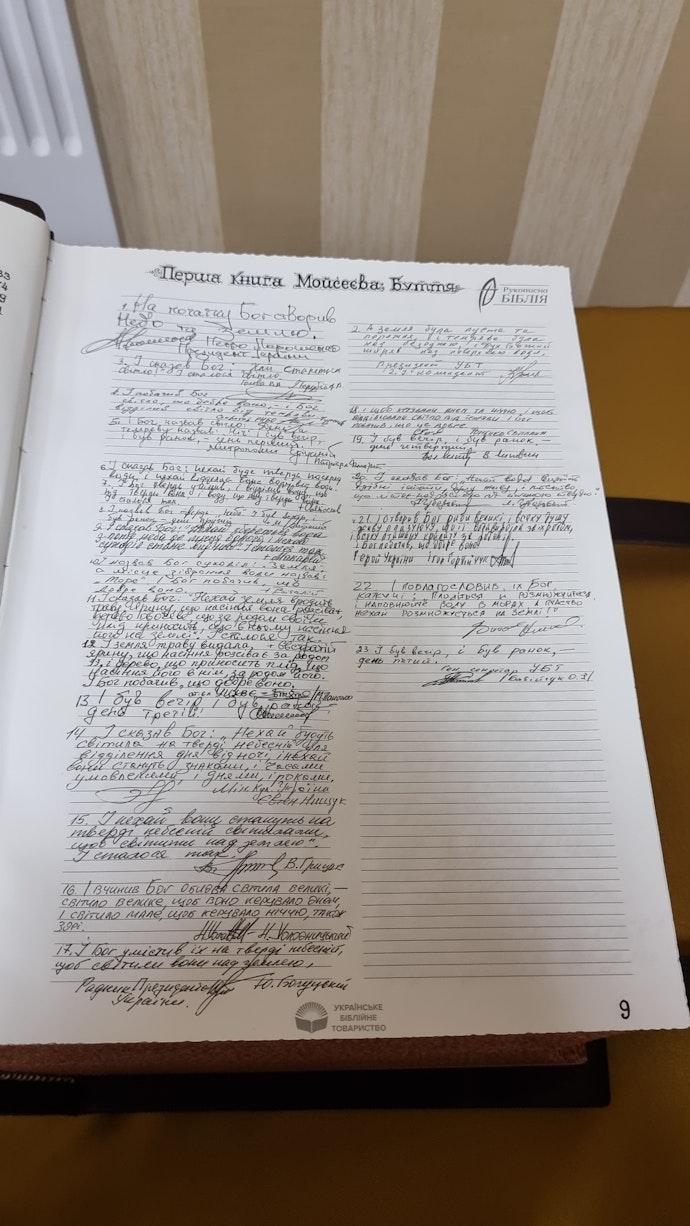 Перша книга Мойсеєва: Буття
Рукописна
БІБЛІЯ
1. На початку Бог створив
Небо та Землю.
Петро Порошенко
Президент України
3. І сказав Бог: "Хай станеться
світло!" І сталося світло.
4. І побачив Бог
світло, що добре воно, і Бог
відділив світло від темряви
5. І Бог назвав світло: День, а
темряву назвав: Ніч. І був вечір,
і був ранок, – день перший.
Митрополит
6. І сказав Бог: Нехай буде твердь посеред
води, і нехай відділяє вона воду від води
7. І Бог твердь учинив, і відділив воду, що
під твердю вона, і воду, що над твердю вона.
І сталося так.
8. І назвав Бог твердь "Небо". І був вечір, і
був ранок – день другий
9. І сказав Бог: "Нехай збереться вода
з-попід неба до місця одного, і нехай
суходіл стане видний". І сталося так.
10. І назвав Бог суходіл: "Земля",
а місце зібрання води назвав:
"Море". І Бог побачив, що
добре воно.
11. І сказав Бог: "Нехай земля вродить
траву, ярину, що насіння вона розсіває,
дерево овочеве, що за родом своїм
плід приносить, що в ньому насіння
його на землі". І сталося так.
12. І земля траву видала,
ярину, що насіння розсіває за родом
її, і дерево, що приносить плід, що
насіння його в нім за родом його.
І Бог побачив, що добре воно.
13. І був вечір і був ранок –
день третій.
14. І сказав Бог: "Нехай будуть
світила на тверді небесній для
відділення дня від ночі, і нехай
вони стануть знаками, і часами
умовленими, і днями, і роками,
Мінкульт України
Євген Нищук
15. І нехай вони стануть на
тверді небесній світилами,
щоб світити над землею".
І сталося так.
В. Грицак
16. І вчинив Бог обидва світила великі, –
світило велике, щоб воно керувало днем,
і світило мале, щоб керувало ніччю, також
зорі.
Н. Холодницький
17. І Бог умістив їх на тверді небесній,
щоб світили вони над землею,
Радник Президента Ю. Богуцький
України.
2. А Земля була пуста та
порожня, і темрява була
над безоднею, і Дух Божий
ширяв над поверхнею води.
Президент УБТ
18. і щоб керували днем та ніччю, і щоб
відділювали світло від темряви. І Бог
побачив, що це добре.
19. І був вечір, і був ранок, –
день четвертий.
20. І сказав Бог: "Нехай вода вироїть
21. І створив Бог риби великі, і всяку душу
живу плазуючу, що її вода вироїла за їх родом,
і всяку пташину крилату за родом її.
І Бог побачив, що добре воно.
Герой України Ігор Гордійчук
22. І поблагословив їх Бог,
кажучи: "Плодіться й розмножуйтеся,
і наповнюйте воду в морях, а птаство
нехай розмножується на землі!"
23. І був вечір, і був ранок, –
день п'ятий.
Ген. секретар УБТ
УКРАЇНСЬКЕ
БІБЛІЙНЕ
ТОВАРИСТВО
9